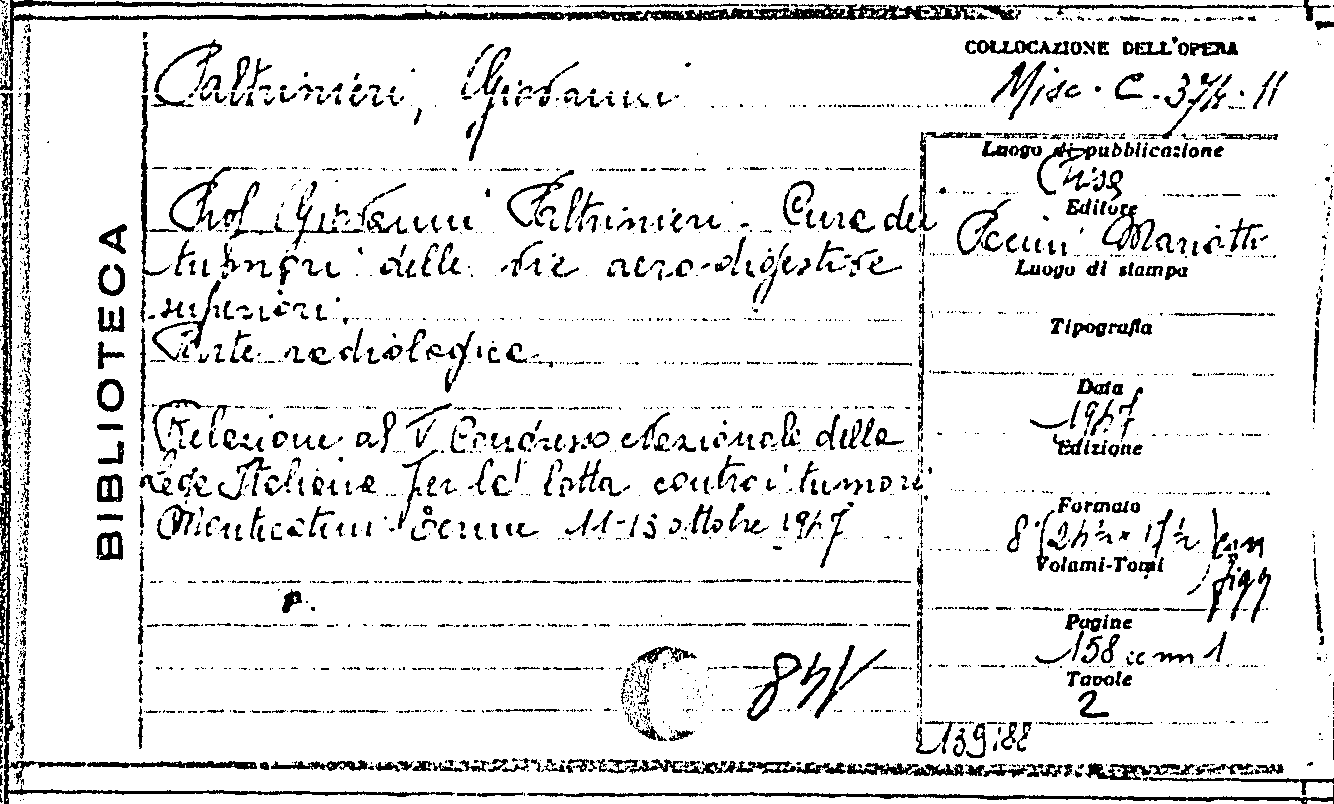 COLLOCAZIONE DELL'OPERA
Misc. C. 374.11
Paltrinieri, Giovanni
BIBLIOTECA
Prof Giovanni Paltrinieri. Cura dei
tumori delle vie aero-digestive
superiori.
Parte radiologica.
Relazione al V Congresso Nazionale della
Lega Italiana per la lotta contro i tumori
Montecatini-Terme 11-13 ottobre 1947
Luogo di pubblicazione
Pisa
Editore
Pacini Mariotti
Luogo di stampa
Tipografia
Data
1947
Edizione
Formato
8° (24½ x 17½) con
figg
Volumi-Tomi
Pagine
158
Tavole
2
139188